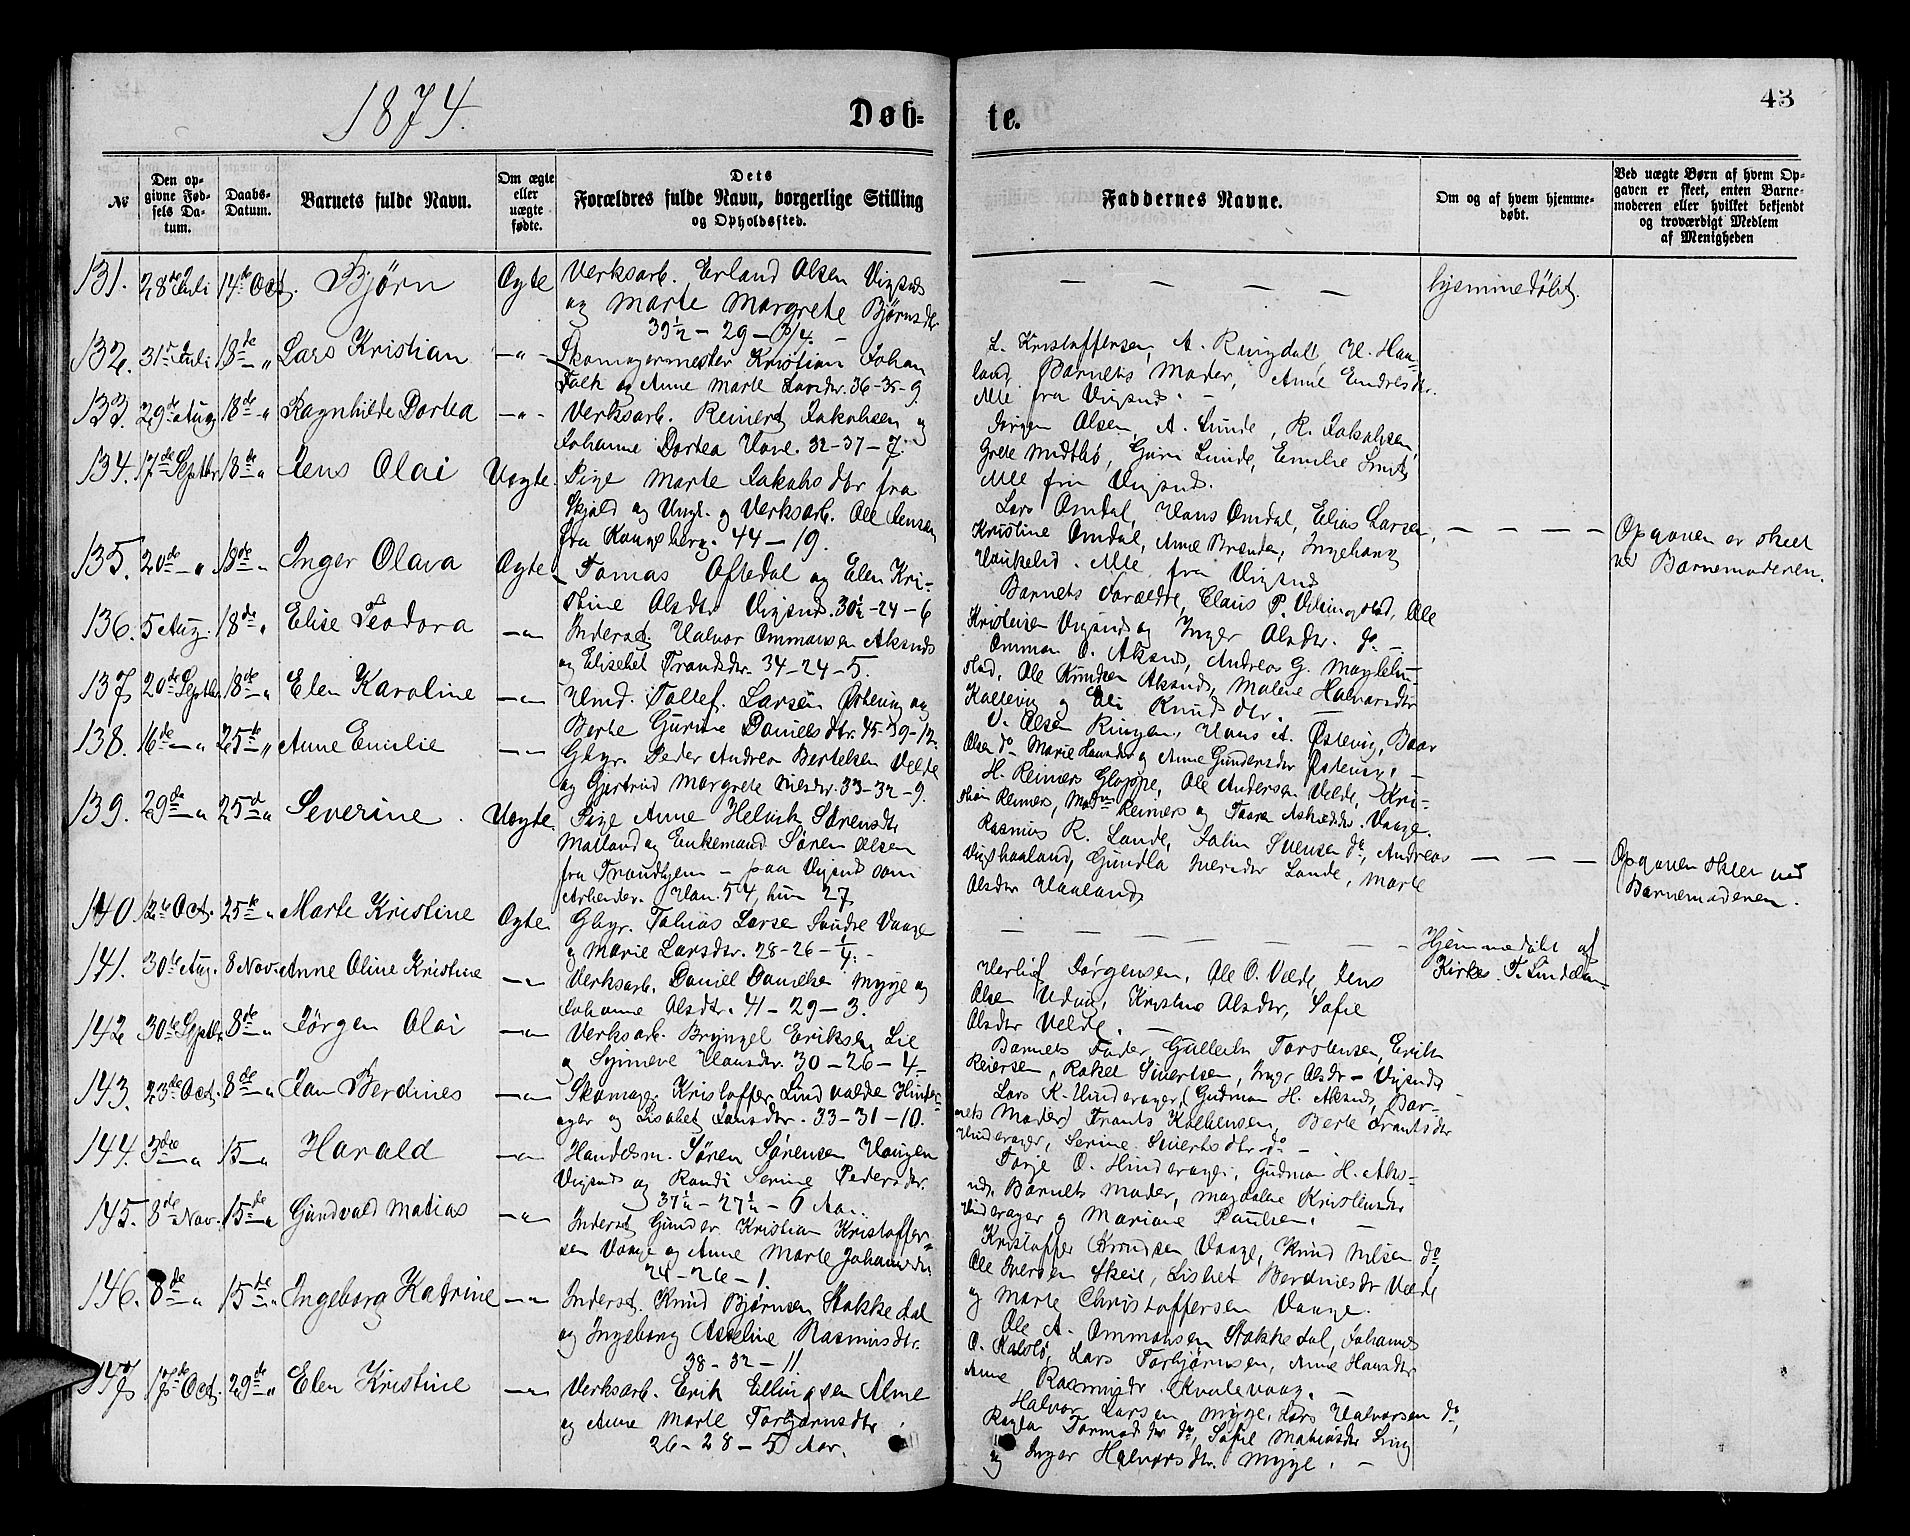 1874.
Døb-
te.
43
№
Den op-
givne Fød-
sels Da-
tum.
Daabs-
Datum.
Barnets fulde Navn.
Om ægte
eller
uægte
fødte.
Dets
Forældres fulde Navn, borgerlige Stilling
og Opholdssted.
Faddernes Navne.
Om og af hvem hjemme-
døbt.
Ved uægte Børn af hvem Op-
gaven er skeet, enten Barne-
moderen eller hvilket bekjendt
og troværdigt Medlem
af Menigheden
131. 28de Juli 14de Oct. Bjørn Ægte Verksarb. Erland Olsen Vigsnæs
og Marte Margrete Bjørnsdtr
39½ - 29 - 3/4. -
— — — — hjemmedøbt.
132. 31te Juli 18de — " Lars Kristian —"— Skomagermester Kristian Johan
Falk og Anne Marte Larsdtr. 36-35-9.
L. Kristoffersen, A. Ringdal, H. Haa-
land. Barnets Moder, Anne Endresdtr.
Alle fra Vigsnæs. -
133. 29de Aug. 18de — " Ragnhilde Dortea —"— Verksarb. Reinert Jakobsen og
Johanne Dortea Hove. 32-37-7.
Jørgen Olsen, A. Lunde, R. Jakobsen,
Grete Midtbø, Guri Lunde, Emilie Smith
Alle fra Vigsnæs.
134. 17de Septbr. 18de — " Jens Olai Uægte. Pige Marte Jakobsdtr fra
Skjold og Ungk. og Verksarb. Ole Jensen
fra Kongsberg. 44 - 19.
Lars Omdal, Hans Omdal, Elias Larsen,
Kristine Omdal, Anne, Ingeborg
Haukelid. Alle fra Vigsnæs
— — — —
Opgaven er skeet
ved Barnemoderen.
135. 20de — " 18de — " Inger Olava Ægte Tomas Oftedal og Elen Kri-
stine Olsdtr Vigsnæs. 30½-24-6
Barnets Forældre, Claus P., Ole
Kristensen Vigsnæs og Inger Olsdtr. do -
136. 5 Aug. 18de — " Elise Teodora —"— Inderst Halvor Ommansen Aksnæs
og Elisebet Trondsdtr. 34-24-5.
Omman O. Aksnæs, Andreas G. Magele-
stad, Ole Knudsen Aksnæs, Malene Halvorsdtr
Kallevig og Eli Knudsdtr. —
137. 20de Septbr. 18de — " Elen Karoline —"— Hmd. Tollef Larsen Østevig og
Berte Gurine Danielsdtr. 45-39-12.
O. Olsen Ringen, Hans A. Østevig, Baar
Olsen do Marie Hansdtr og Anne Gundersdtr Østevig. -
138. 16de — " 25de — " Anne Emilie —"— Gbgr. Peder Andreas Bertelsen Velde
og Gjertrud Margrete Nilsdtr. 33-32-9.
H. Reiners Gloppe, Ole Andersen Velde, Kri-
stian Reiners, Mad. Reiners og Taara Askildsdtr. Vaage.
139. 29de — " 25de — " Severine. Uægte. Pige Anne Helvik Sørensdtr
Matland og Enkemand Søren Olsen
fra Trondhjem - paa Vigsnæs som
Arbeider. Han 54, hun 27
Rasmus R. Lande, John Svensen do, Andreas
Vigshaaland, Gundla Iversdtr Lande, Marte
Olsdtr Haaland,
— — —
Opgaven skeet ved
Barnemoderen.
140. 12te Oct. 25de — " Marte Kristine Ægte Gbgr. Tobias Larsen Søndre Vaage
og Marie Larsdtr. 28-26-¼.-
— — — — — — —
Hjemmedøbt af
Kirkes. T. Lindtun
141. 30te Aug. 8 Nov. Anne Oline Kristine —"— Verksarb. Daniel Danielsen Myge og
Johanne Olsdtr. 41-29-3.
Herlof Jørgensen, Ole O. Væde, Jens
Olsen Udvig, Kristine Olsdtr, Sofie
Olsdtr Velde. —
142. 30te Septbr. 8de — " Jørgen Olai —"— Verksarb. Brynjel Eriksen Lie
og Synneve Hansdtr. 30-26-4.
Barnets Fader, Gulleik Torstensen, Erik
Reiersen, Rakel Sivertsen, Inger Olsdtr - Vigsnæs
143. 23de Oct. 8de — " Jan Berdines —"— Skomager Kristoffer Lindvaldsen Hinder-
ager og Lisabet Larsdtr. 33-31-10.
Lars K. Hinderager, (Gudmon H. Aksnæs, Bar-
nets Moder) Frants Kolbensen, Berte Frantsdtr
Hinderager, Serine Sivertsdtr do -
144. 3die — " 15 — " Harald —"— Handelsm. Søren Sørensen Haugen
Vigsnæs og Randi Serine Pedersdtr.
37½ - 27½ - 6 Aar.
Torje O. Hinderager, Gudmon H. Aks-
næs, Barnets Moder, Magdalene Kristensdtr
Hinderager og Mariane Paulsen. —
145. 8de Nov. 15de — " Gundvald Matias —"— Inderst Gunder Kristian Kristoffer-
sen Vaage og Anne Marte Johannesdtr
24-26-1.
Kristoffer Knudsen Vaage, Knud Nilsen do,
Ole Iversen Skeie, Lisbet Berdinesdtr Væde
og Marte Christoffersen Vaage.
146. 8de — " 15de — " Ingeborg Katrine —"— Inderst. Knud Bjørnsen Stokkedal
og Ingeborg Asseline Rasmusdtr.
38-32-11
Ole A. Ommansen Stokkedal, Johannes
O. Kalstø, Lars Torbjørnsen, Anne Hansdtr
Anne Rasmusdtr. Kvalevaag. —
147 17de Oct. 29de — " Elen Kristine —"— Verksarb. Erik Ellingsen Alme
og Anne Marte Torbjørnsdtr.
26-28-5 Aar.
Halvor Larsen Myge, Lars Halvorsen do,
Tormodsdtr do, Sofie Matiasdtr Ling
og Inger Halvorsdtr. Myge. —